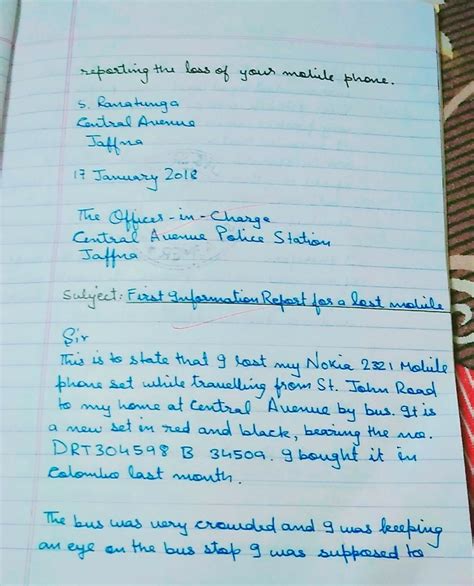 reporting the loss of your mobile phone.
S. Ranatunga
Central Avenue
Jaffna
17 January 2018
The Officer-in-Charge
Central Avenue Police Station
Jaffna
Subject: First Information Report for a lost mobile
Sir
This is to state that I lost my Nokia 2321 Mobile
phone set while travelling from St. John Road
to my home at Central Avenue by bus. It is
a new set in red and black, bearing the no.
DRT304598 B 34509. I bought it in
Colombo last month.
The bus was very crowded and I was keeping
an eye on the bus stop I was supposed to